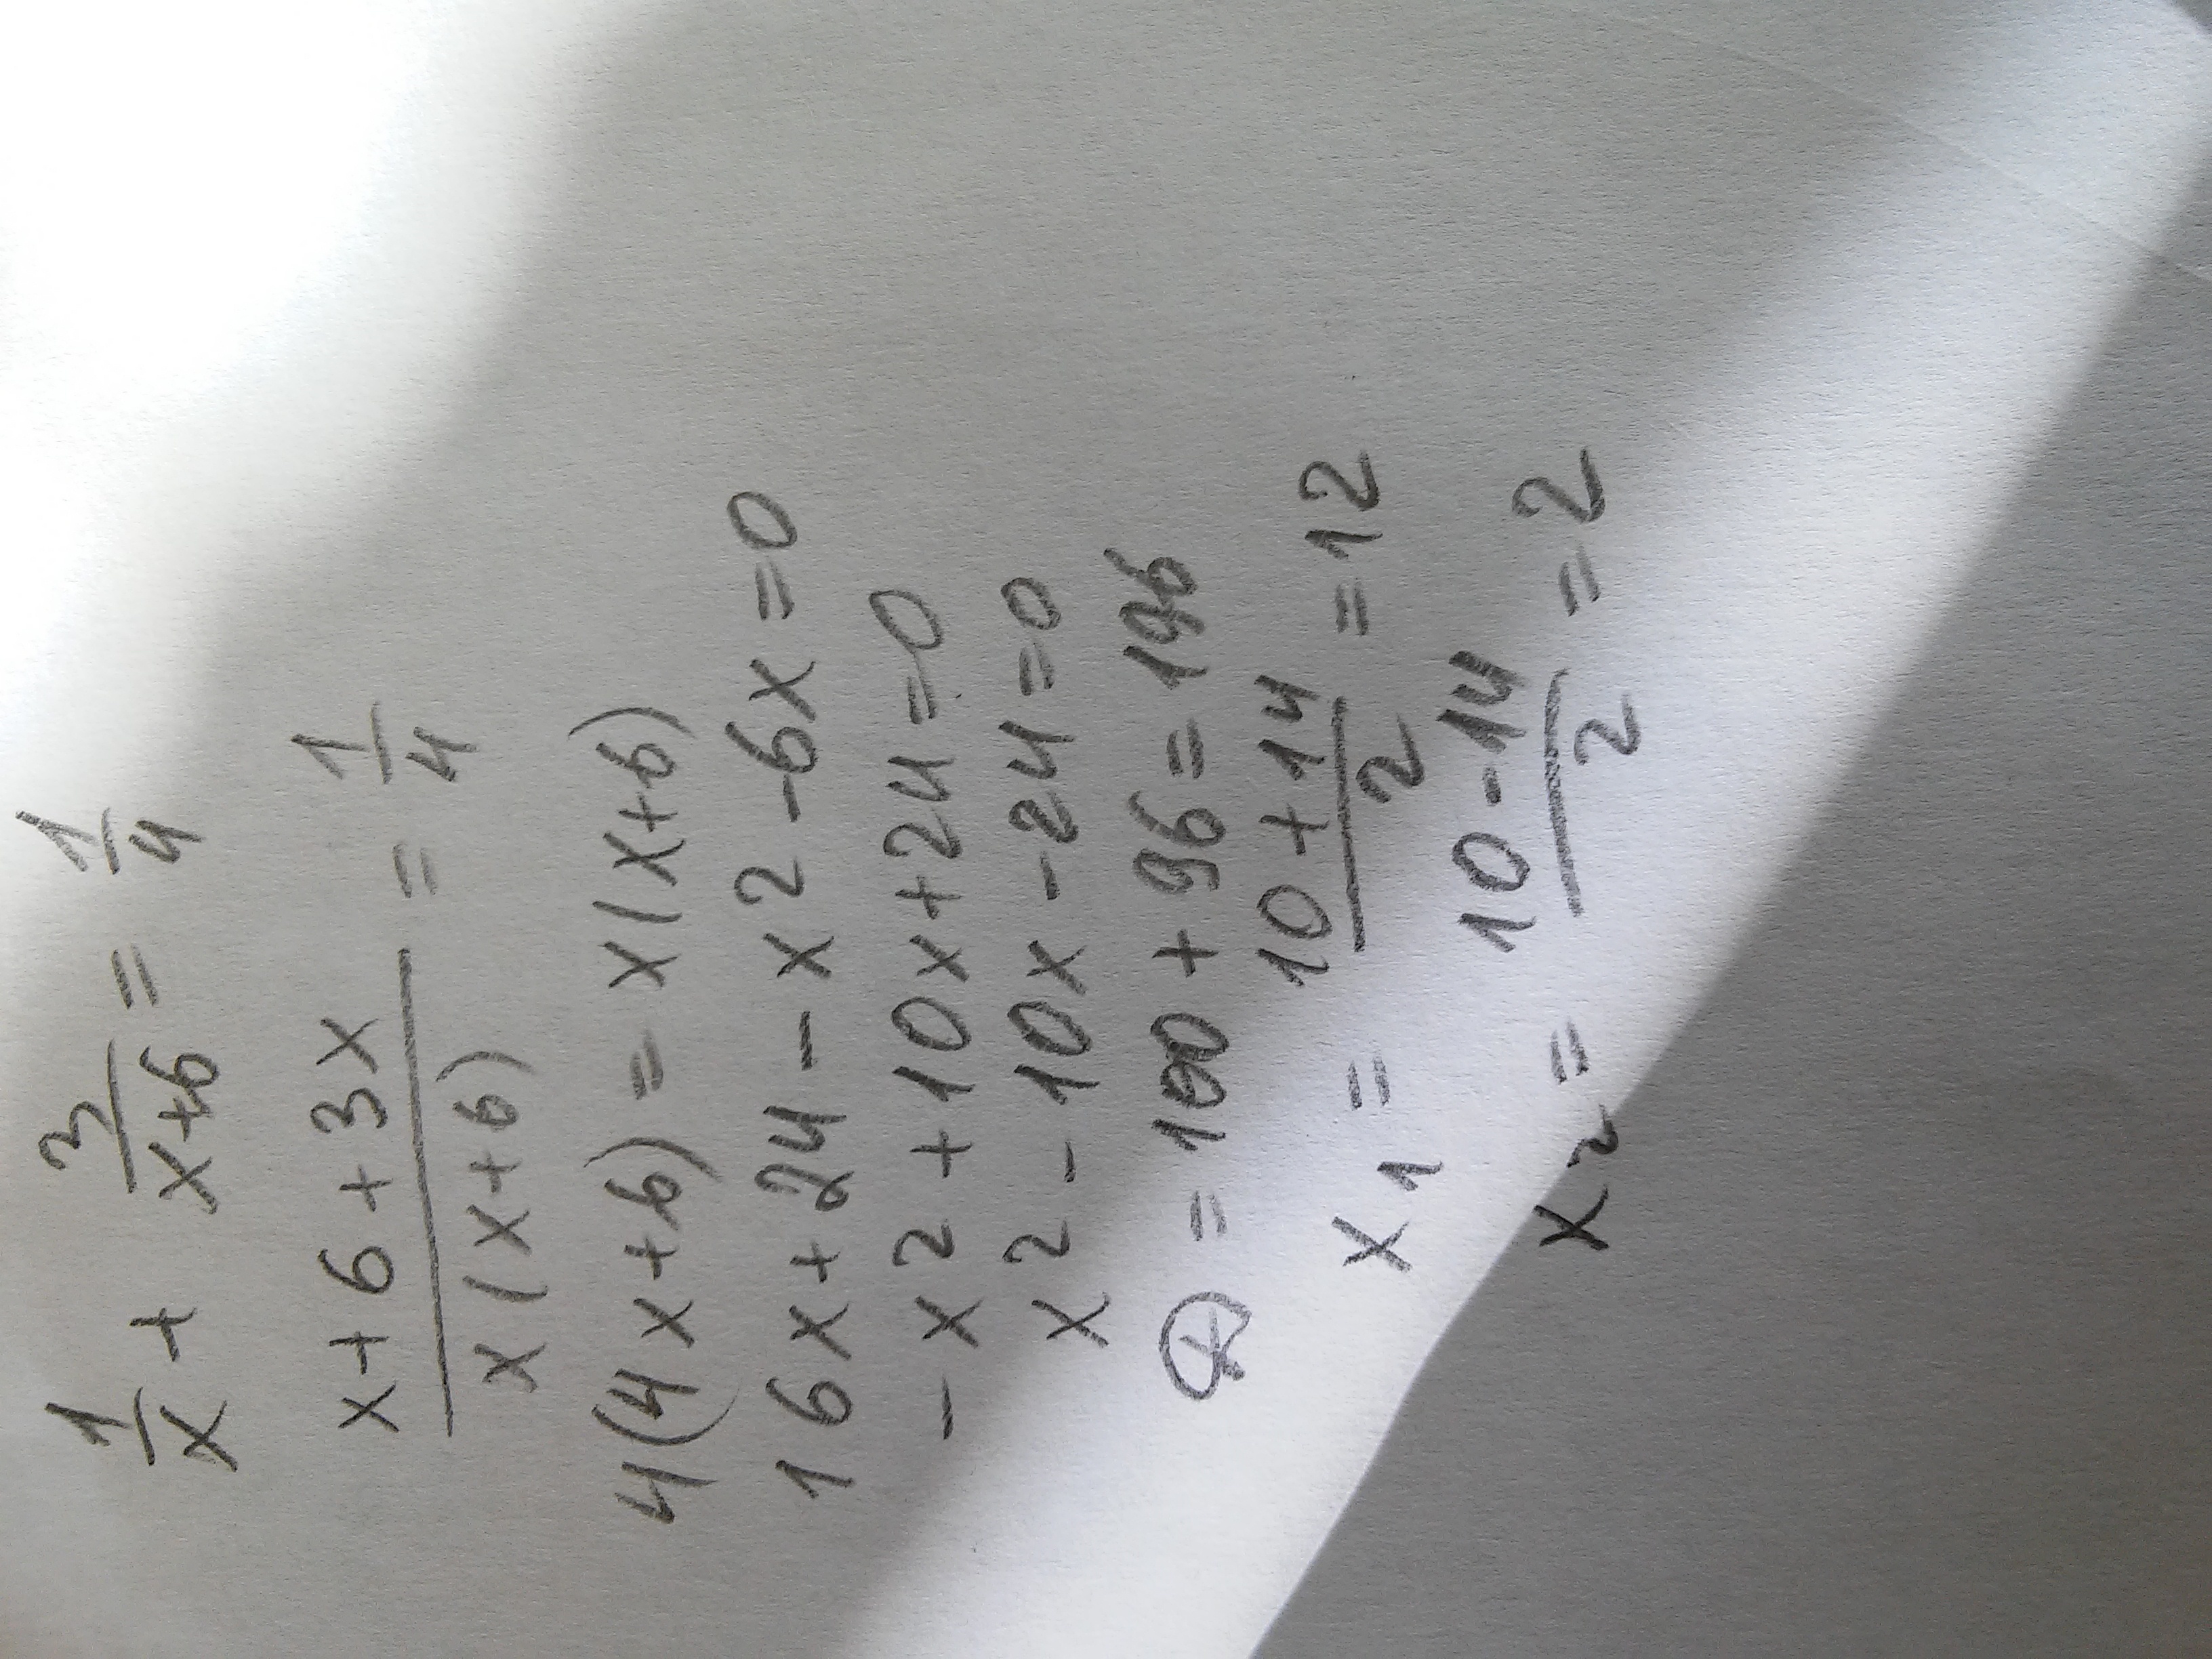 1/x + 3/x+6 = 1/4
x+6+3x/x(x+6) = 1/4
4(4x+6) = x(x+6)
16x+24-x2-6x=0
-x2+10x+24=0
x2-10x-24=0
D=100+96=196
x1 = 10+14/2 =12
x2 = 10-14/2 =2